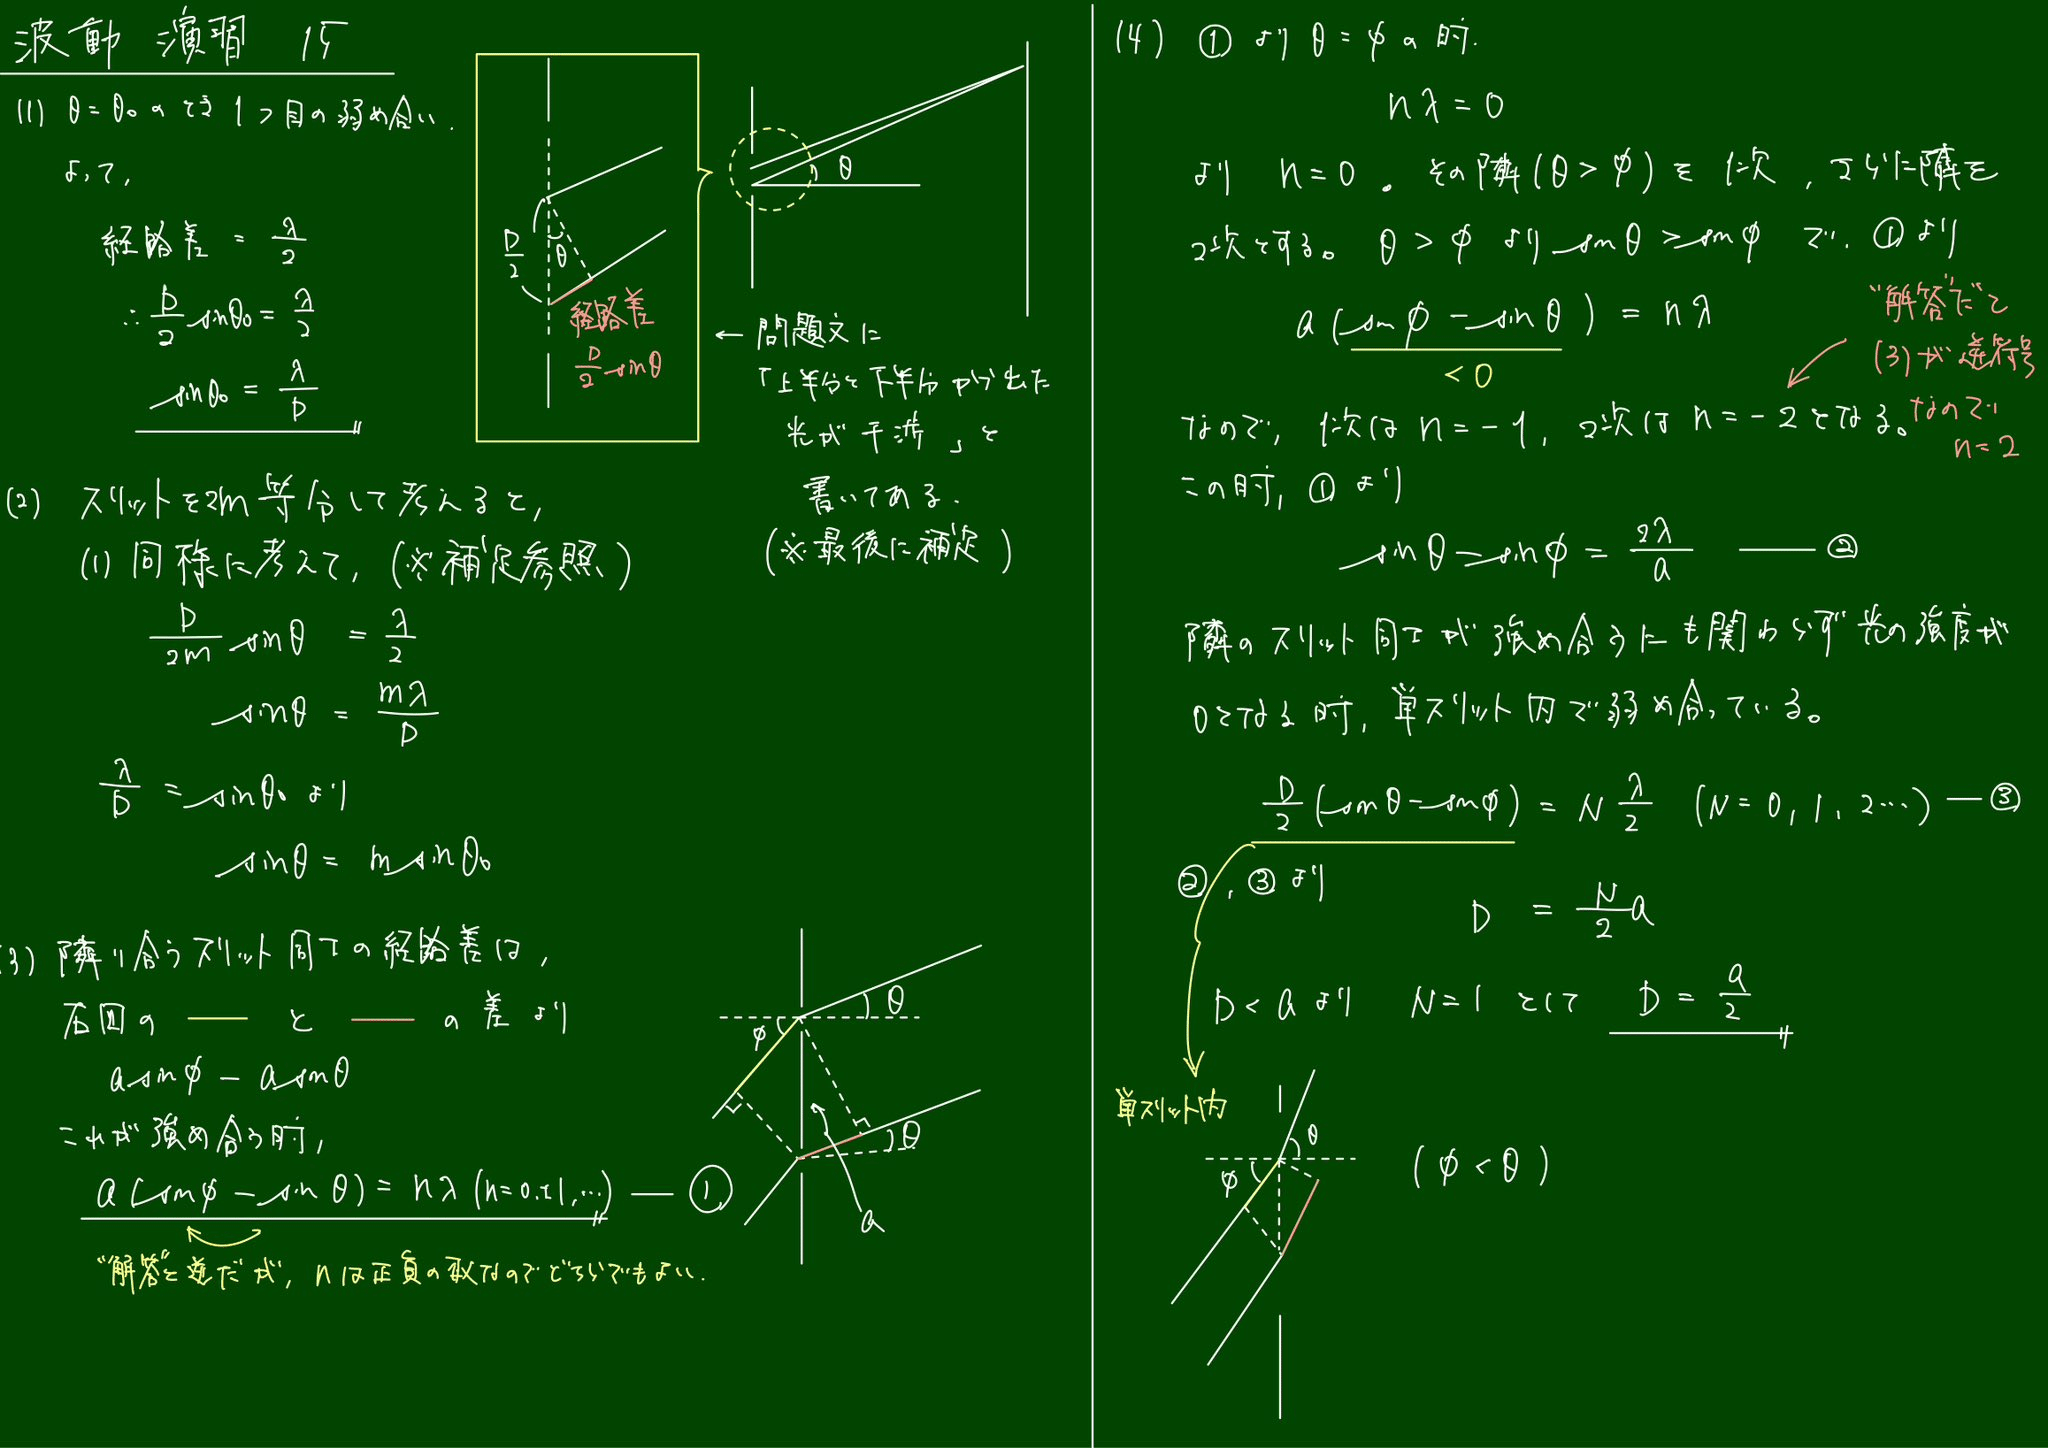 波動 演習 15
(1) θ=θ₀のとき 1つ目の弱め合い.
よって,
経路差 = λ/2
∴ D/2 sinθ₀ = λ/2
sinθ₀ = λ/D
D/2
θ
経路差
D/2 sinθ
θ
← 問題文に
「上半分と下半分から出た
光が干渉」と
書いてある.
(※最後に補足)
(2) スリットを2m等分して考えると,
(1)同様に考えて, (※補足参照)
D/2m sinθ = λ/2
sinθ = mλ/D
λ/D = sinθ₀ より
sinθ = m sinθ₀
(3) 隣り合うスリット同士の経路差は,
右図の ― と ― の差より
a sinφ − a sinθ
これが強め合う時,
a(sinφ − sinθ) = nλ (n=0,±1,…) ― ①
"解答"と逆だが, nは正負の数なのでどちらでもよい.
θ
φ
θ
a
(4) ①より θ=φの時.
nλ=0
より n=0. その隣(θ>φ)を1次, さらに隣を
2次とする。 θ>φ より sinθ>sinφ で. ①より
a(sinφ − sinθ) = nλ
<0
"解答"だと
(3)が逆符号
なので,
n=2
なので, 1次は n=−1, 2次は n=−2となる。
この時, ①より
sinθ − sinφ = 2λ/a ― ②
隣のスリット同士が強め合うにも関わらず光の強度が
0となる時, 単スリット内で弱め合っている。
D/2 (sinθ − sinφ) = N λ/2 (N=0,1,2…) ― ③
②, ③より
D = N/2 a
D<aより N=1として D = a/2
単スリット内
θ
φ
(φ<θ)